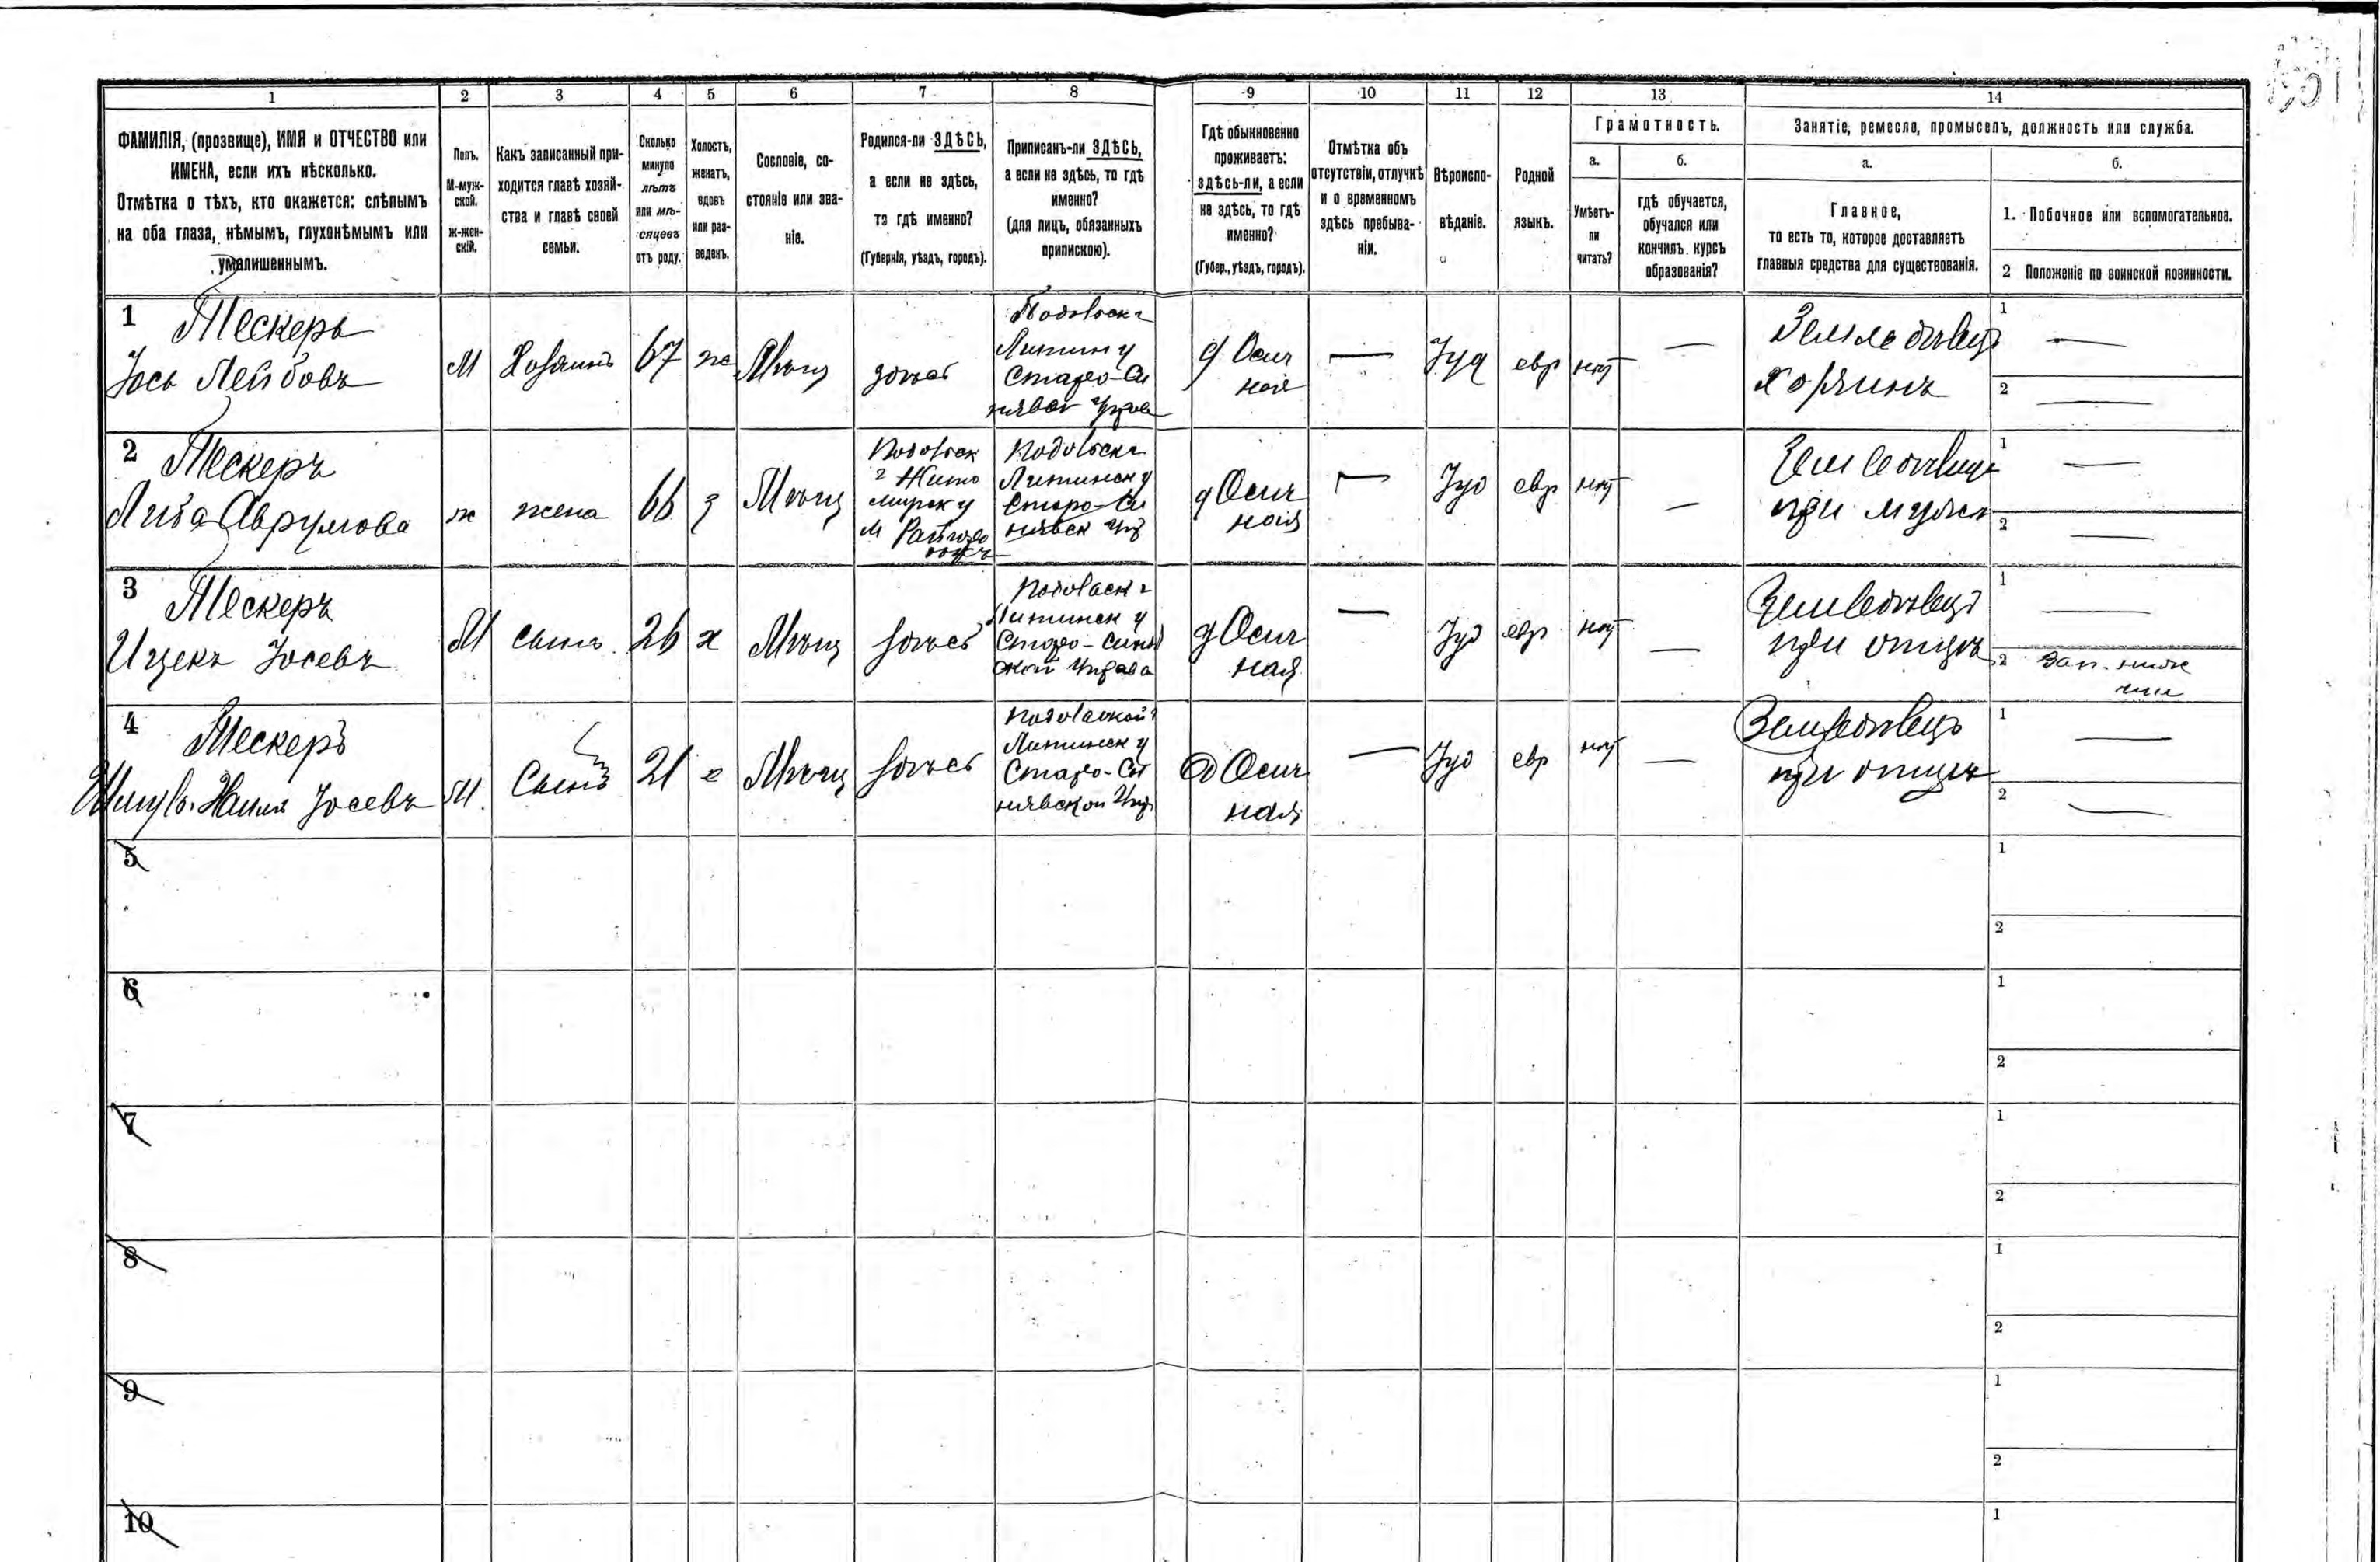 1 2 3 4 5 6 7 8 9 10 11 12 13 14
ФАМИЛІЯ, (прозвище), ИМЯ и ОТЧЕСТВО или
ИМЕНА, если ихъ нѣсколько.
Отмѣтка о тѣхъ, кто окажется: слѣпымъ
на оба глаза, нѣмымъ, глухонѣмымъ или
умалишеннымъ.
Полъ.
М-муж-
ской.
ж-жен-
скій.
Какъ записанный при-
ходится главѣ хозяй-
ства и главѣ своей
семьи.
Сколько
минуло
лѣтъ
или мѣ-
сяцевъ
отъ роду.
Холостъ,
женатъ,
вдовъ
или раз-
веденъ.
Сословіе, со-
стояніе или зва-
ніе.
Родился-ли ЗДѢСЬ,
а если не здѣсь,
то гдѣ именно?
(Губернія, уѣздъ, городъ).
Приписанъ-ли ЗДѢСЬ,
а если не здѣсь, то гдѣ
именно?
(для лицъ, обязанныхъ
припискою).
Гдѣ обыкновенно
проживаетъ:
здѣсь-ли, а если
не здѣсь, то гдѣ
именно?
(Губер., уѣздъ, городъ).
Отмѣтка объ
отсутствіи, отлучкѣ
и о временномъ
здѣсь пребыва-
ніи.
Вѣроиспо-
вѣданіе.
Родной
языкъ.
Грамотность.
а.
Умѣетъ-
ли
читать?
б.
гдѣ обучается,
обучался или
кончилъ курсъ
образованія?
Занятіе, ремесло, промыселъ, должность или служба.
а.
Главное,
то есть то, которое доставляетъ
главныя средства для существованія.
б.
1. Побочное или вспомогательное.
2 Положеніе по воинской повинности.
1
Тескеръ
Іось Лейбовъ
М
Хозяинъ
67
ж
Мѣщ
здѣсь
Подольск г
Литин у
Старо-Си
нявск Управ
д Осич
ная
—
Іуд
евр
нѣт
—
Земледѣлецъ
хозяинъ
1 —
2 —
2
Тескеръ
Либа Аврумова
ж
жена
66
з
Мѣщ
Подольск
г Жито
мирск у
м Райгоро
докъ
Подольск г
Литинск у
Старо-Си
нявск Упр
д Осич
ная
—
Іуд
евр
нѣт
—
Земледѣлица
при мужѣ
1 —
2 —
3
Тескеръ
Ицекъ Іосевъ
М
сынъ
26
х
Мѣщ
здѣсь
Подольск г
Литинск у
Старо-Синяв
ской Управа
д Осич
ная
—
Іуд
евр
нѣт
—
Земледѣлецъ
при отцѣ
1 —
2 Зап. ниж
чин
4
Тескеръ
Хаимъ Іосевъ
М.
Сынъ
21
х
Мѣщ
здѣсь
Подольской г
Литинск у
Старо-Си
нявской Упр
д Осич
ная
—
Іуд
евр
нѣт
—
Земледѣлецъ
при отцѣ
1 —
2 —
5
1
2
6
1
2
7
1
2
8
1
2
9
1
2
10
1